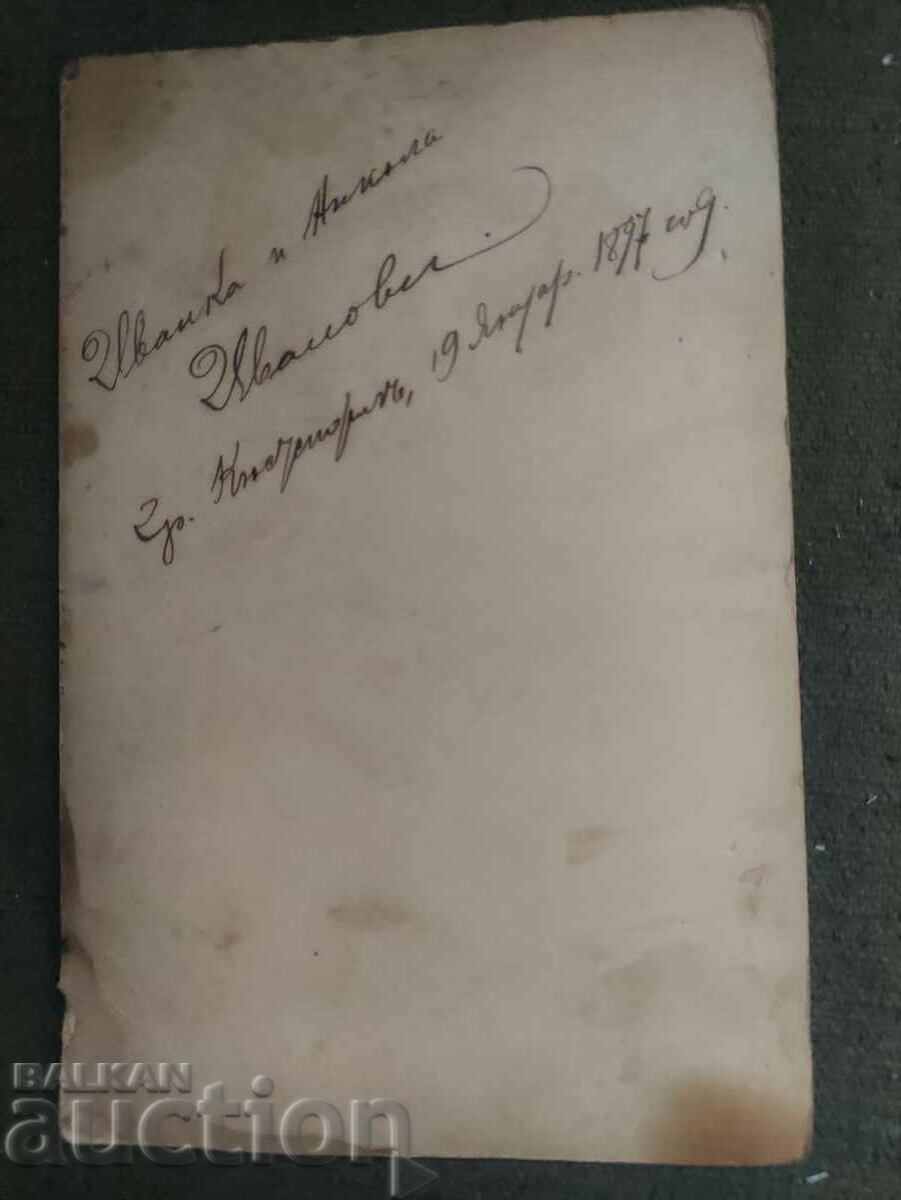 Иванка и Никола
Ивановы.
Гр. Кюстендилъ, 19 Януар. 1897 год.
BALKAN
auction